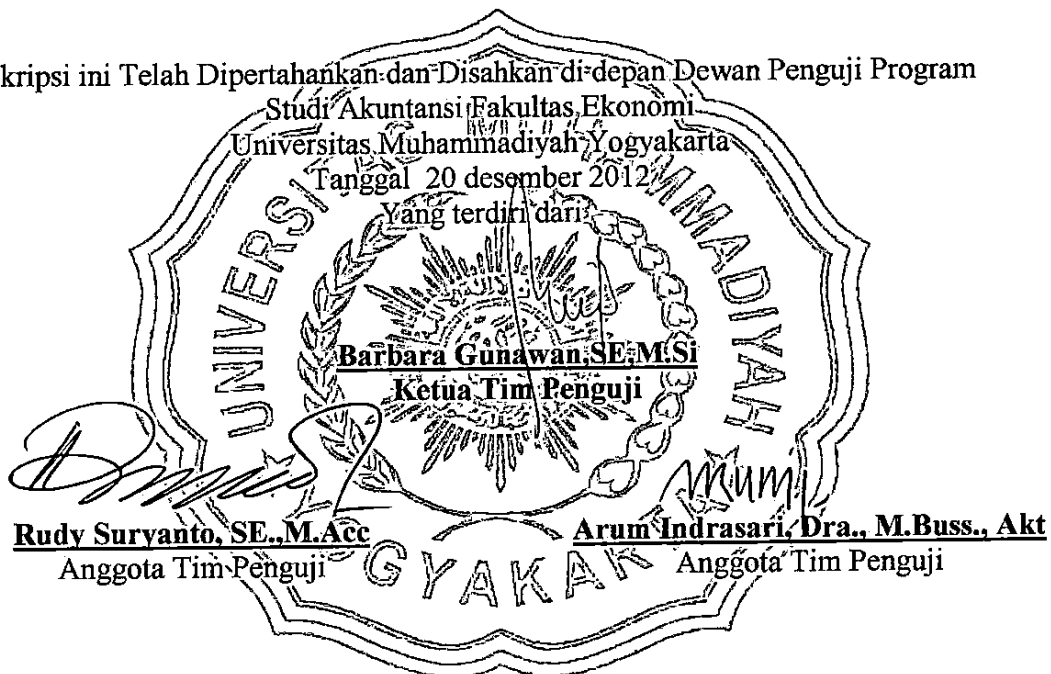 kripsi ini Telah Dipertahankan dan Disahkan di depan Dewan Penguji Program
Studi Akuntansi Fakultas Ekonomi
Universitas Muhammadiyah Yogyakarta
Tanggal 20 desember 2012
Yang terdiri dari:
Barbara Gunawan,SE,M.Si
Ketua Tim Penguji
Rudy Suryanto, SE.,M.Acc
Anggota Tim Penguji
Arum Indrasari, Dra., M.Buss., Akt
Anggota Tim Penguji